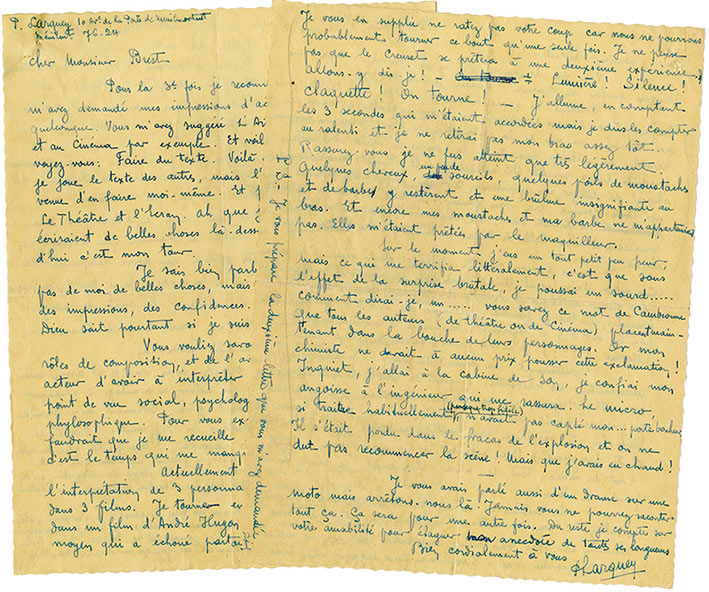 P. Larquey 10 Av. de la Porte de Ménilmontant
Ménilm. 76-24
cher Monsieur Brest
Pous la 3e fois je recom
m'avez demandé mes impressions d'ac
quelconque. Vous m'avez suggéré
et au Cinéma par exemple. Et voil
voyez-vous: Faire du texte. Voilà
je joue le texte des autres, mais l'
venue d'en faire moi-même. Et p
Le Théâtre et l'Ecran. Ah que
écriraient de belles choses là-dess
d'hui c'est mon tour.
Je sais bien parb
pas de moi de belles choses, mais
des impressions, des confidences.
Dieu sait pourtant si je suis
Vous vouliez savo
rôles de composition, et de l'ar
acteur d'avoir à interpréter
point de vue social, psycholog
phylosophique. Pour vous ex
faudrait que je me recueille
c'est le temps qui me manq
Actuellement
l'interprétation de 3 personna
dans 3 films. Je tourne en
dans un film d'André Hugon
moyen qui a échoué partout
P.S- Je vous prépare la deuxième lettre que vous m'avez demandée
Je vous en supplie ne ratez pas votre coup car nous ne pourrons
probablement tourner ce bout qu'une seule fois. Je ne pense
pas que le creuset se prêtera à une deuxième expérience
Allons-y dis-je! - Lumière! Silence!
claquette! On tourne! - J'allume, en comptant
les 3 secondes qui m'étaient accordées mais je dus les compter
au ralenti et je ne retirai pas mon bras assez tôt.
Rassurez vous je ne fus atteint que très légèrement
Quelques cheveux, un peu de sourcils, quelques poils de moustache
et de barbe y restèrent et une brûlure insignifiante au
bras. Et encore mes moustaches et ma barbe ne m'appartenaient
pas. Elles m'étaient prêtées par le maquilleur.
Sur le moment j'eus un tout petit peu peur,
mais ce qui me terrifia littéralement, c'est que sous
l'effet de la surprise brutale, je poussai un sourd.....
comment dirai-je, un ..... vous savez ce mot de Cambronne
que tous les auteurs (de théâtre ou de Cinéma) placent main-
tenant dans la bouche de leurs personnages. Or mon
chimiste ne devait à aucun prix pousser cette exclamation!
Inquiet, j'allai à la cabine de Son, je confiai mon
angoisse à l'ingénieur qui me rassura: Le micro,
si traître habituellement n'avait pas capté mon... porte bonheur
Il s'était perdu dans le fracas de l'explosion et on ne
dut pas recommencer la scène! Mais que j'avais eu chaud!
Je vous avais parlé aussi d'un drame sur une
moto mais arrêtons-nous là. Jamais vous ne pourrez raconter
tout ça. Ça sera pour une autre fois. Du reste je compte sur
votre amabilité pour élaguer mon anecdote de toutes ses longueurs
Bien cordialement à vous
PLarquey